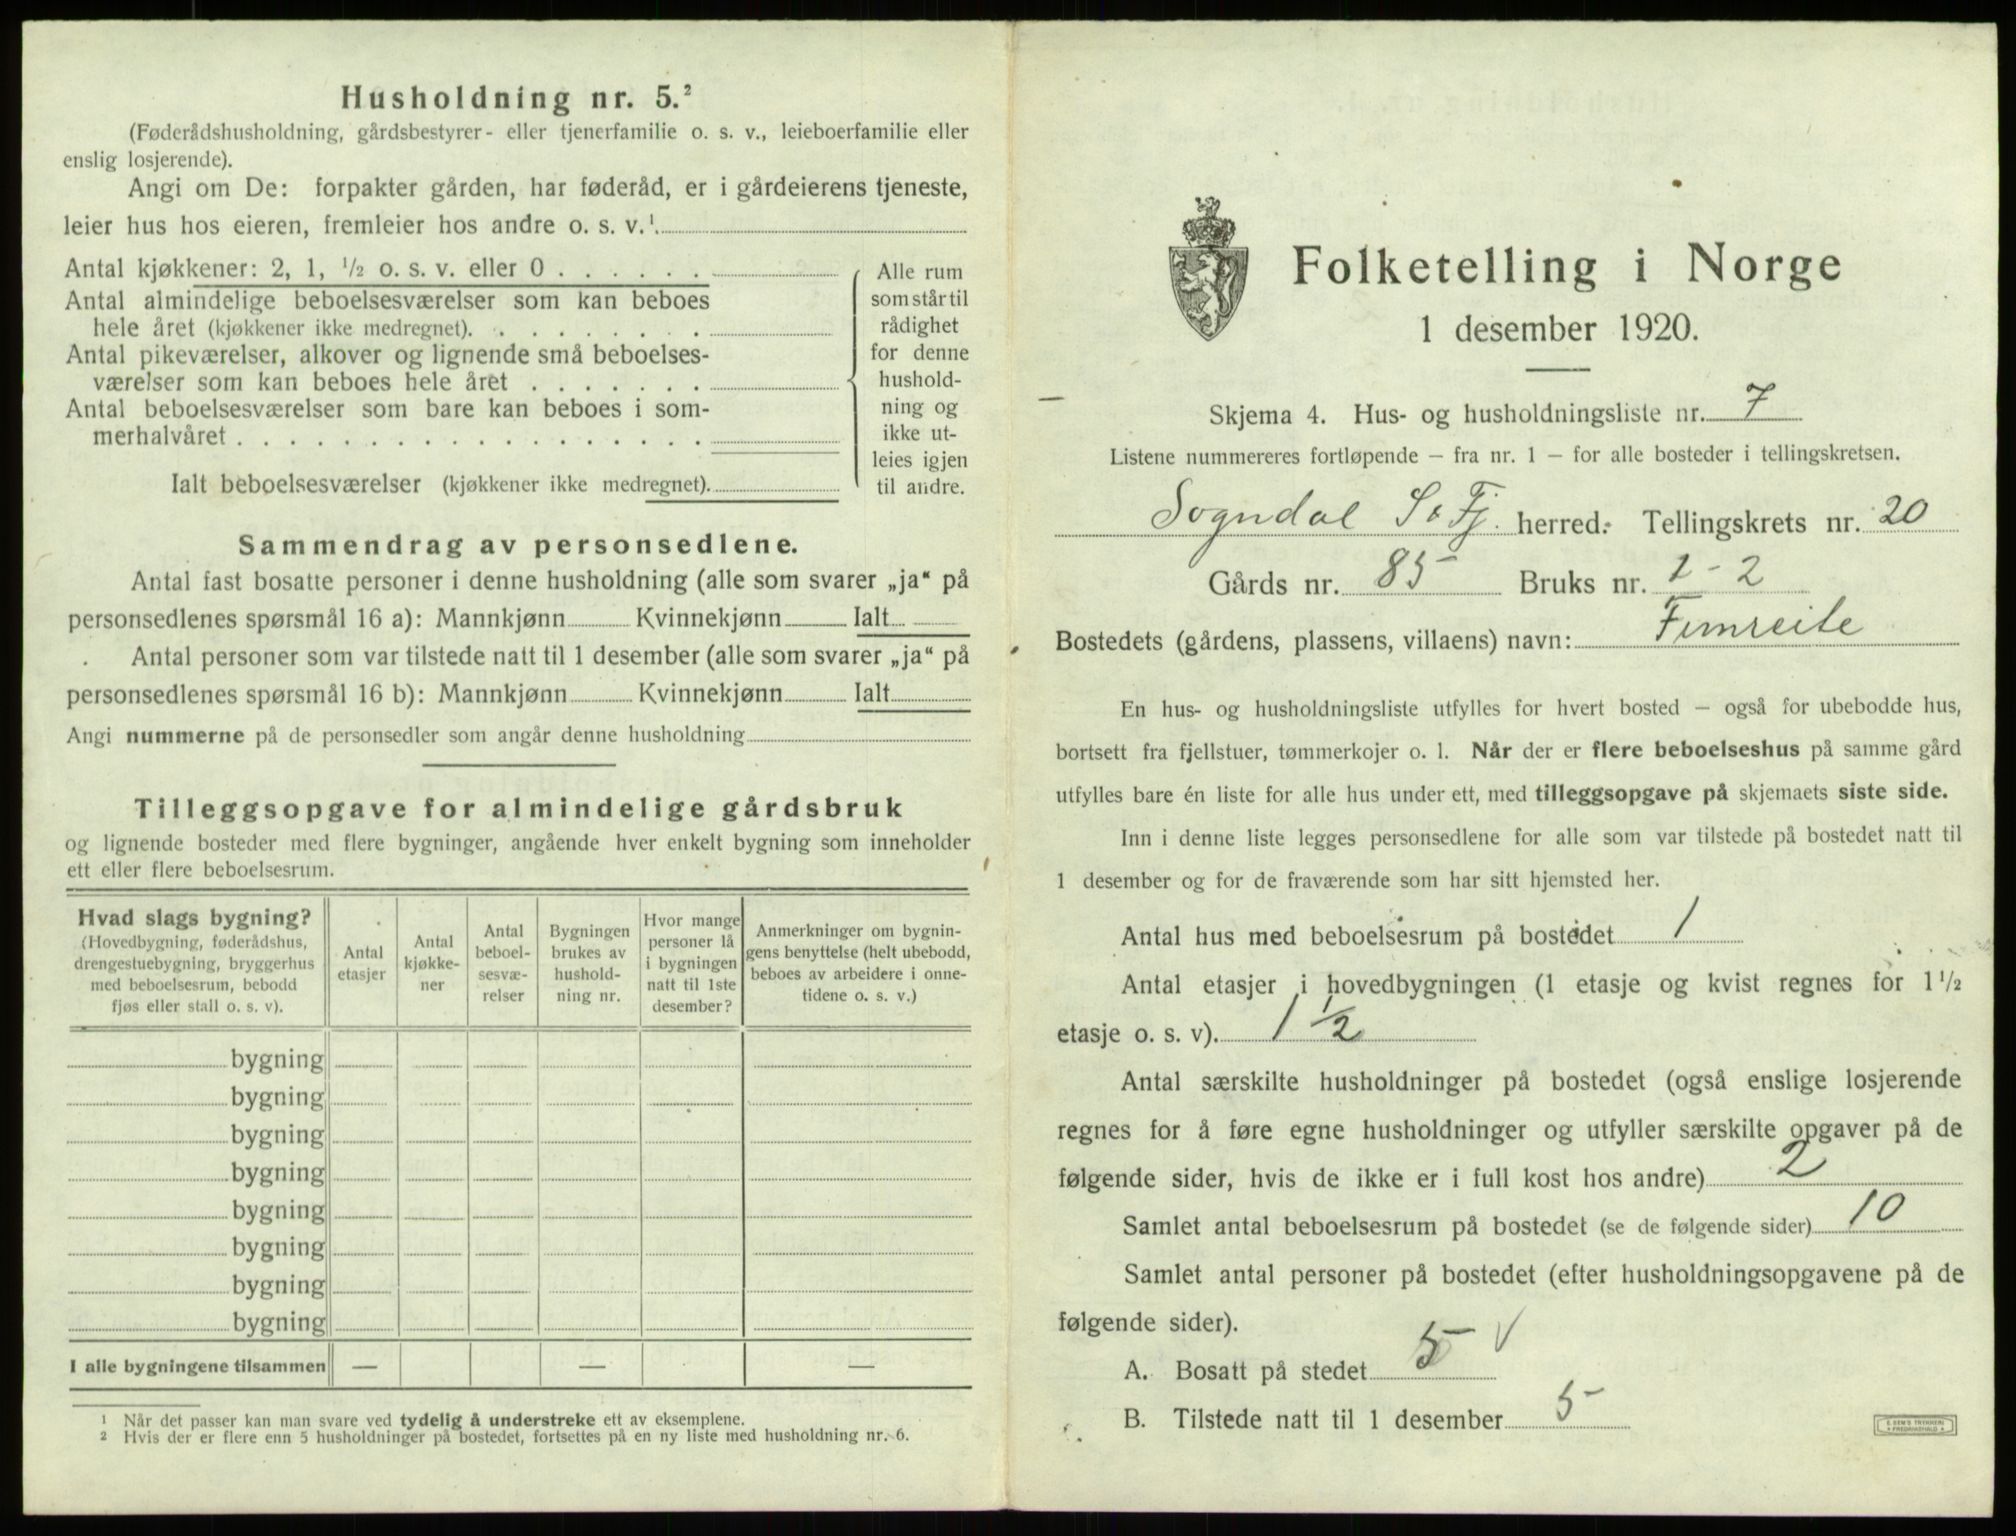 Husholdning nr. 5.²
(Føderådshusholdning, gårdsbestyrer- eller tjenerfamilie o. s. v., leieboerfamilie eller
enslig losjerende).
Angi om De: forpakter gården, har føderåd, er i gårdeierens tjeneste,
leier hus hos eieren, fremleier hos andre o. s. v.¹
Antal kjøkkener: 2, 1, ½ o. s. v. eller 0 . . . . . .
Antal almindelige beboelsesværelser som kan beboes
hele året (kjøkkener ikke medregnet). . . . . . . . .
Antal pikeværelser, alkover og lignende små beboelses-
værelser som kan beboes hele året . . . . . . .
Antal beboelsesværelser som bare kan beboes i som-
merhalvåret . . . . . . . . . . . . . . . . . .
Ialt beboelsesværelser (kjøkkener ikke medregnet).
Alle rum
som står til
rådighet
for denne
hushold-
ning og
ikke ut-
leies igjen
til andre.
Sammendrag av personsedlene.
Antal fast bosatte personer i denne husholdning (alle som svarer „ja“ på
personsedlenes spørsmål 16 a): Mannkjønn Kvinnekjønn Ialt
Antal personer som var tilstede natt til 1 desember (alle som svarer „ja“ på
personsedlenes spørsmål 16 b): Mannkjønn Kvinnekjønn Ialt
Angi nummerne på de personsedler som angår denne husholdning
Tilleggsopgave for almindelige gårdsbruk
og lignende bosteder med flere bygninger, angående hver enkelt bygning som inneholder
ett eller flere beboelsesrum.
Hvad slags bygning?
(Hovedbygning, føderådshus,
drengestuebygning, bryggerhus
med beboelsesrum, bebodd
fjøs eller stall o. s. v).
Antal
etasjer
Antal
kjøkke-
ner
Antal
beboel-
sesvæ-
relser
Bygningen
brukes av
hushold-
ning nr.
Hvor mange
personer lå
i bygningen
natt til 1ste
desember?
Anmerkninger om bygnin-
gens benyttelse (helt ubebodd,
beboes av arbeidere i onne-
tidene o. s. v.)
bygning
bygning
bygning
bygning
bygning
bygning
bygning
bygning
I alle bygningene tilsammen — — —
¹ Når det passer kan man svare ved tydelig å understreke ett av eksemplene.
² Hvis der er flere enn 5 husholdninger på bostedet, fortsettes på en ny liste med husholdning nr. 6.
Folketelling i Norge
1 desember 1920.
Skjema 4. Hus- og husholdningsliste nr. 7
Listene nummereres fortløpende – fra nr. 1 – for alle bosteder i tellingskretsen.
Sogndal S & Fj. herred. Tellingskrets nr. 20
Gårds nr. 85 Bruks nr. 1 - 2
Bostedets (gårdens, plassens, villaens) navn: Fimreite
En hus- og husholdningsliste utfylles for hvert bosted – også for ubebodde hus,
bortsett fra fjellstuer, tømmerkojer o. l. Når der er flere beboelseshus på samme gård
utfylles bare én liste for alle hus under ett, med tilleggsopgave på skjemaets siste side.
Inn i denne liste legges personsedlene for alle som var tilstede på bostedet natt til
1 desember og for de fraværende som har sitt hjemsted her.
Antal hus med beboelsesrum på bostedet 1
Antal etasjer i hovedbygningen (1 etasje og kvist regnes for 1½
etasje o. s. v). 1 ½
Antal særskilte husholdninger på bostedet (også enslige losjerende
regnes for å føre egne husholdninger og utfyller særskilte opgaver på de
følgende sider, hvis de ikke er i full kost hos andre) 2
Samlet antal beboelsesrum på bostedet (se de følgende sider) 10
Samlet antal personer på bostedet (efter husholdningsopgavene på de
følgende sider).
A. Bosatt på stedet 5 √
B. Tilstede natt til 1 desember 5
E. SEM'S TRYKKERI
FREDRIKSHALD